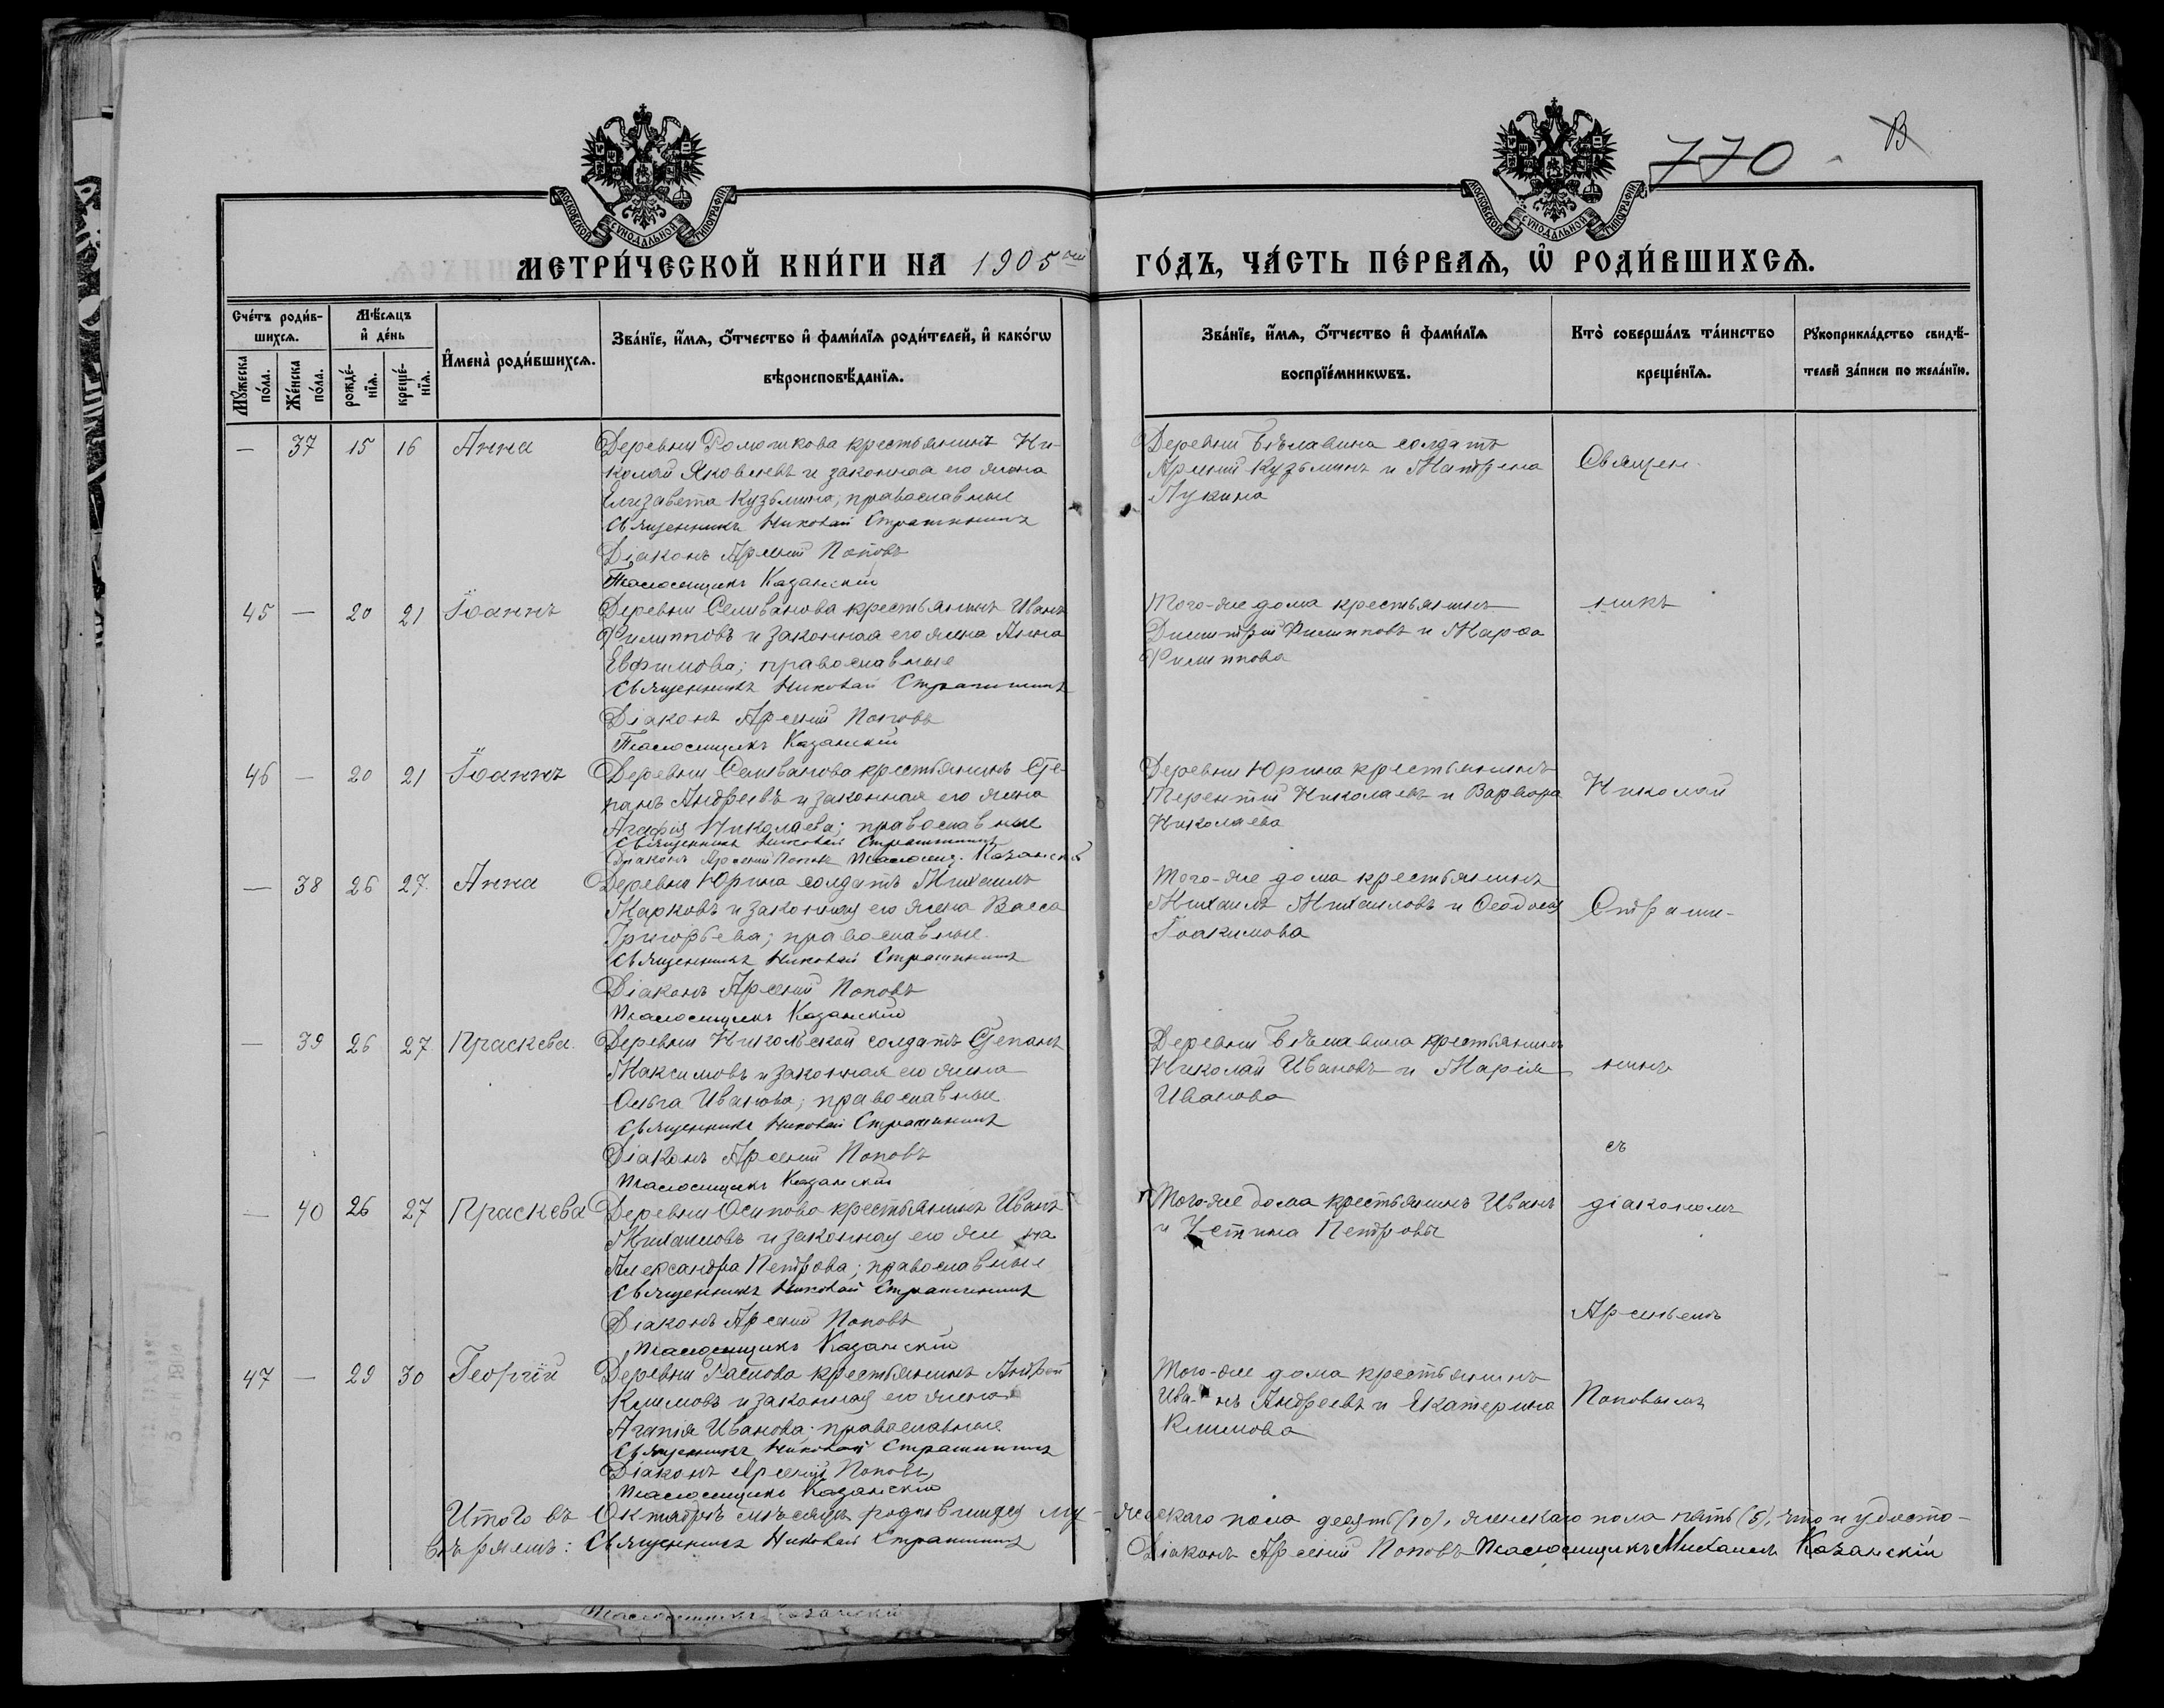 770
МОСКОВСКОЙ СѴНОДАЛЬНОЙ ТИПОГРАФІИ
МОСКОВСКОЙ СѴНОДАЛЬНОЙ ТИПОГРАФІИ
МЕТРИ́ЧЕСКОЙ КНИ́ГИ НА 1905 ГО́ДЪ, ЧА́СТЬ ПЕ́РВАѦ, Ѡ҆ РОДИ́ВШИХСѦ.
Сче́тъ роди́в-
шихсѧ.
Мꙋ́жеска по́ла.
Же́нска по́ла.
Мѣ́сѧцъ
и҆ де́нь
рожде́-
нїѧ.
креще́-
нїѧ.
И҆мена̀ роди́вшихсѧ.
Зва́нїе, и҆́мѧ, ѻ҆́тчество и҆ фами́лїѧ роди́телей, и҆ како́гѡ
вѣроисповѣ́данїѧ.
Зва́нїе, и҆́мѧ, ѻ҆́тчество и҆ фами́лїѧ
воспрїе́мникѡвъ.
Кто̀ соверша́лъ та́инство
креще́нїѧ.
Рꙋкоприкла́дство свидѣ́-
телей за́писи по жела́нїю.
— 37 15 16 Анна Деревни Ромашкова крестьянинъ Ни-
колай Яковлевъ и законная его жена
Елизавета Кузьмина; православные
Священникъ Николай Страшнинъ
Діаконъ Арсеній Поповъ
Псаломщикъ Казанскій
Деревни Бѣлавина солдатъ
Арсеній Кузьминъ и Матрена
Лукина
Священ-
45 — 20 21 Іоаннъ Деревни Селиванова крестьянинъ Иванъ
Филипповъ и законная его жена Анна
Евфимова; православные
Священникъ Николай Страшнинъ
Діаконъ Арсеній Поповъ
Псаломщикъ Казанскій
Того-же дома крестьянинъ
Димитрій Филипповъ и Марѳа
Филиппова
никъ
46 — 20 21 Іоаннъ Деревни Селиванова крестьянинъ Сте-
панъ Андреевъ и законная его жена
Агафія Николаева; православные
Священникъ Николай Страшнинъ
Діаконъ Арсеній Поповъ Псаломщ. Казанскій
Деревни Юрина крестьянинъ
Терентій Николаевъ и Варвара
Николаева
Николай
— 38 26 27 Анна Деревни Юрина солдатъ Михаилъ
Марковъ и законная его жена Васса
Григорьева; православные
Священникъ Николай Страшнинъ
Діаконъ Арсеній Поповъ
Псаломщикъ Казанскій
Того-же дома крестьянинъ
Михаилъ Михаиловъ и Ѳеодосія
Іоакимова
Страш-
— 39 26 27 Праскева Деревни Никольской солдатъ Степанъ
Максимовъ и законная его жена
Ольга Иванова; православные
Священникъ Николай Страшнинъ
Діаконъ Арсеній Поповъ
Псаломщикъ Казанскій
Деревни Бѣлавина крестьянинъ
Николай Ивановъ и Марія
Иванова
нинъ
съ
— 40 26 27 Праскева Деревни Осипова крестьянинъ Иванъ
Михаиловъ и законная его жена
Александра Петрова; православные
Священникъ Николай Страшнинъ
Діаконъ Арсеній Поповъ
Псаломщикъ Казанскій
Того-же дома крестьянинъ Иванъ
и Устина Петровы
діакономъ
Арсеньемъ
47 — 29 30 Георгій Деревни крестьянинъ Андрей
Климовъ и законная его жена
Агапія Иванова; православные
Священникъ Николай Страшнинъ
Діаконъ Арсеній Поповъ
Псаломщикъ Казанскій
Того-же дома крестьянинъ
Ива-нъ Андреевъ и Екатерина
Климова
Поповымъ
Итого въ Октябрѣ мѣсяцѣ родившихся му-жескаго пола десять (10), женскаго пола пять (5), что и удосто-
вѣряемъ: Священникъ Николай Страшнинъ Діаконъ Арсеній Поповъ Псаломщикъ Михаилъ Казанскій